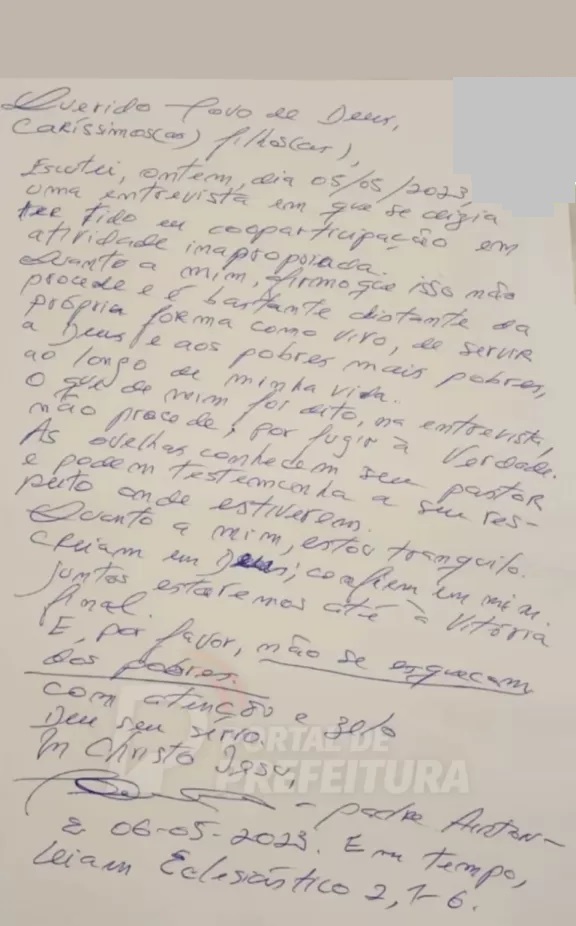 Querido Povo de Deus,
Caríssimos(as) filhos(as),
Escutei, ontem, dia 05/05/2023,
uma entrevista em que se dizia
ter tido eu cooparticipação em
atividade inapropriada.
Quanto a mim, afirmo que isso não
procede e é bastante distante da
própria forma como vivo, de servir
a Deus e aos pobres mais pobres,
ao longo de minha vida.
O que de mim foi dito, na entrevista,
não procede, por fugir à Verdade.
As ovelhas conhecem seu pastor
e podem testemunha a seu res-
peito onde estiverem.
Quanto a mim, estou tranquilo.
Creiam em Deus; confiem em mim.
Juntos estaremos até à Vitória
final.
E, por favor, não se esqueçam
dos pobres.
Com atenção e zelo
Deu seu servo
In Christo Iesu,
- padre Airton-
& 06-05-2023. Em tempo,
leiam Eclesiástico 2, 1-6.
PORTAL DE
PREFEITURA